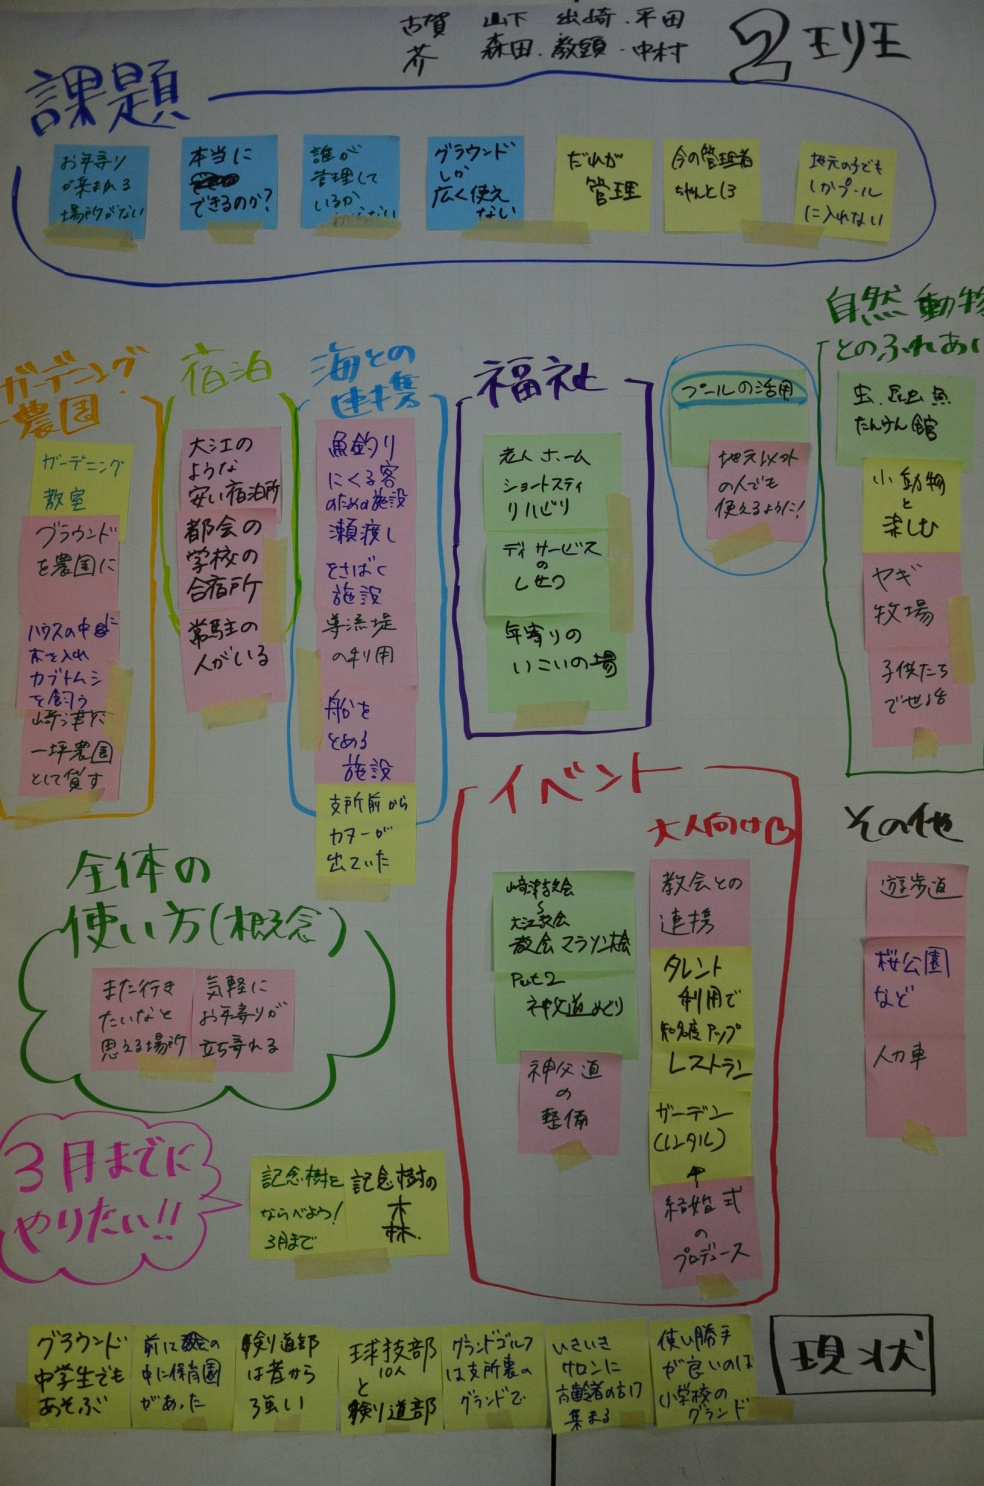 古賀 山下 出崎・平田
芥 森田・教頭・中村
2班
課題
お年寄り
が集まれる
場所がない
本当に
できるのか?
誰が
管理して
いるか
わからない
グラウンド
しか
広く使え
ない
だれが
管理
今の管理者
ちゃんとしろ
地元の子ども
しかプール
に入れない
ガーデニング・
農園
ガーデニング
教室
グラウンド
を農園に
ハウスの中に
木を入れ
カブトムシ
を飼う
崎津で
一坪農園
として貸す
宿泊
大江の
ような
安い宿泊所
都会の
学校の
合宿所
常駐の
人がいる
海との
連携
魚釣り
にくる客
のための施設
瀬渡し
をさばく
施設
導流堤
の利用
船を
とめる
施設
支所前から
カヌーが
出ていた
福祉
老人ホーム
ショートスティ
リハビリ
ディサービス
の
しせつ
年寄りの
いこいの場
プールの活用
地元以外
の人でも
使えるように!
自然動物
とのふれあい
虫、昆虫魚
たんけん館
小動物
と
楽しむ
ヤギ
牧場
子供たち
で世話
全体の
使い方(概念)
また行き
たいなと
思える場所
気軽に
お年寄りが
立ち寄れる
3月までに
やりたい!!
記念樹を
ならべよう!
3月まで
記念樹の
森
イベント
大人向け
崎津教会
〜
大江教会
教会マラソン大会
Part2
神父道めぐり
神父道
の
整備
教会との
連携
タレント
利用で
知名度アップ
レストラン
ガーデン
(レンタル)
↑
結婚式
の
プロデュース
その他
遊歩道
桜公園
など
人力車
現状
グラウンド
中学生でも
あそぶ
前に教会の
中に保育園
があった
剣道部
は昔から
強い
球技部
10人
と
剣道部
グランドゴルフ
は支所裏の
グランドで
いきいき
サロンに
高齢者の方は
集まる
使い勝手
が良いのは
小学校の
グランド